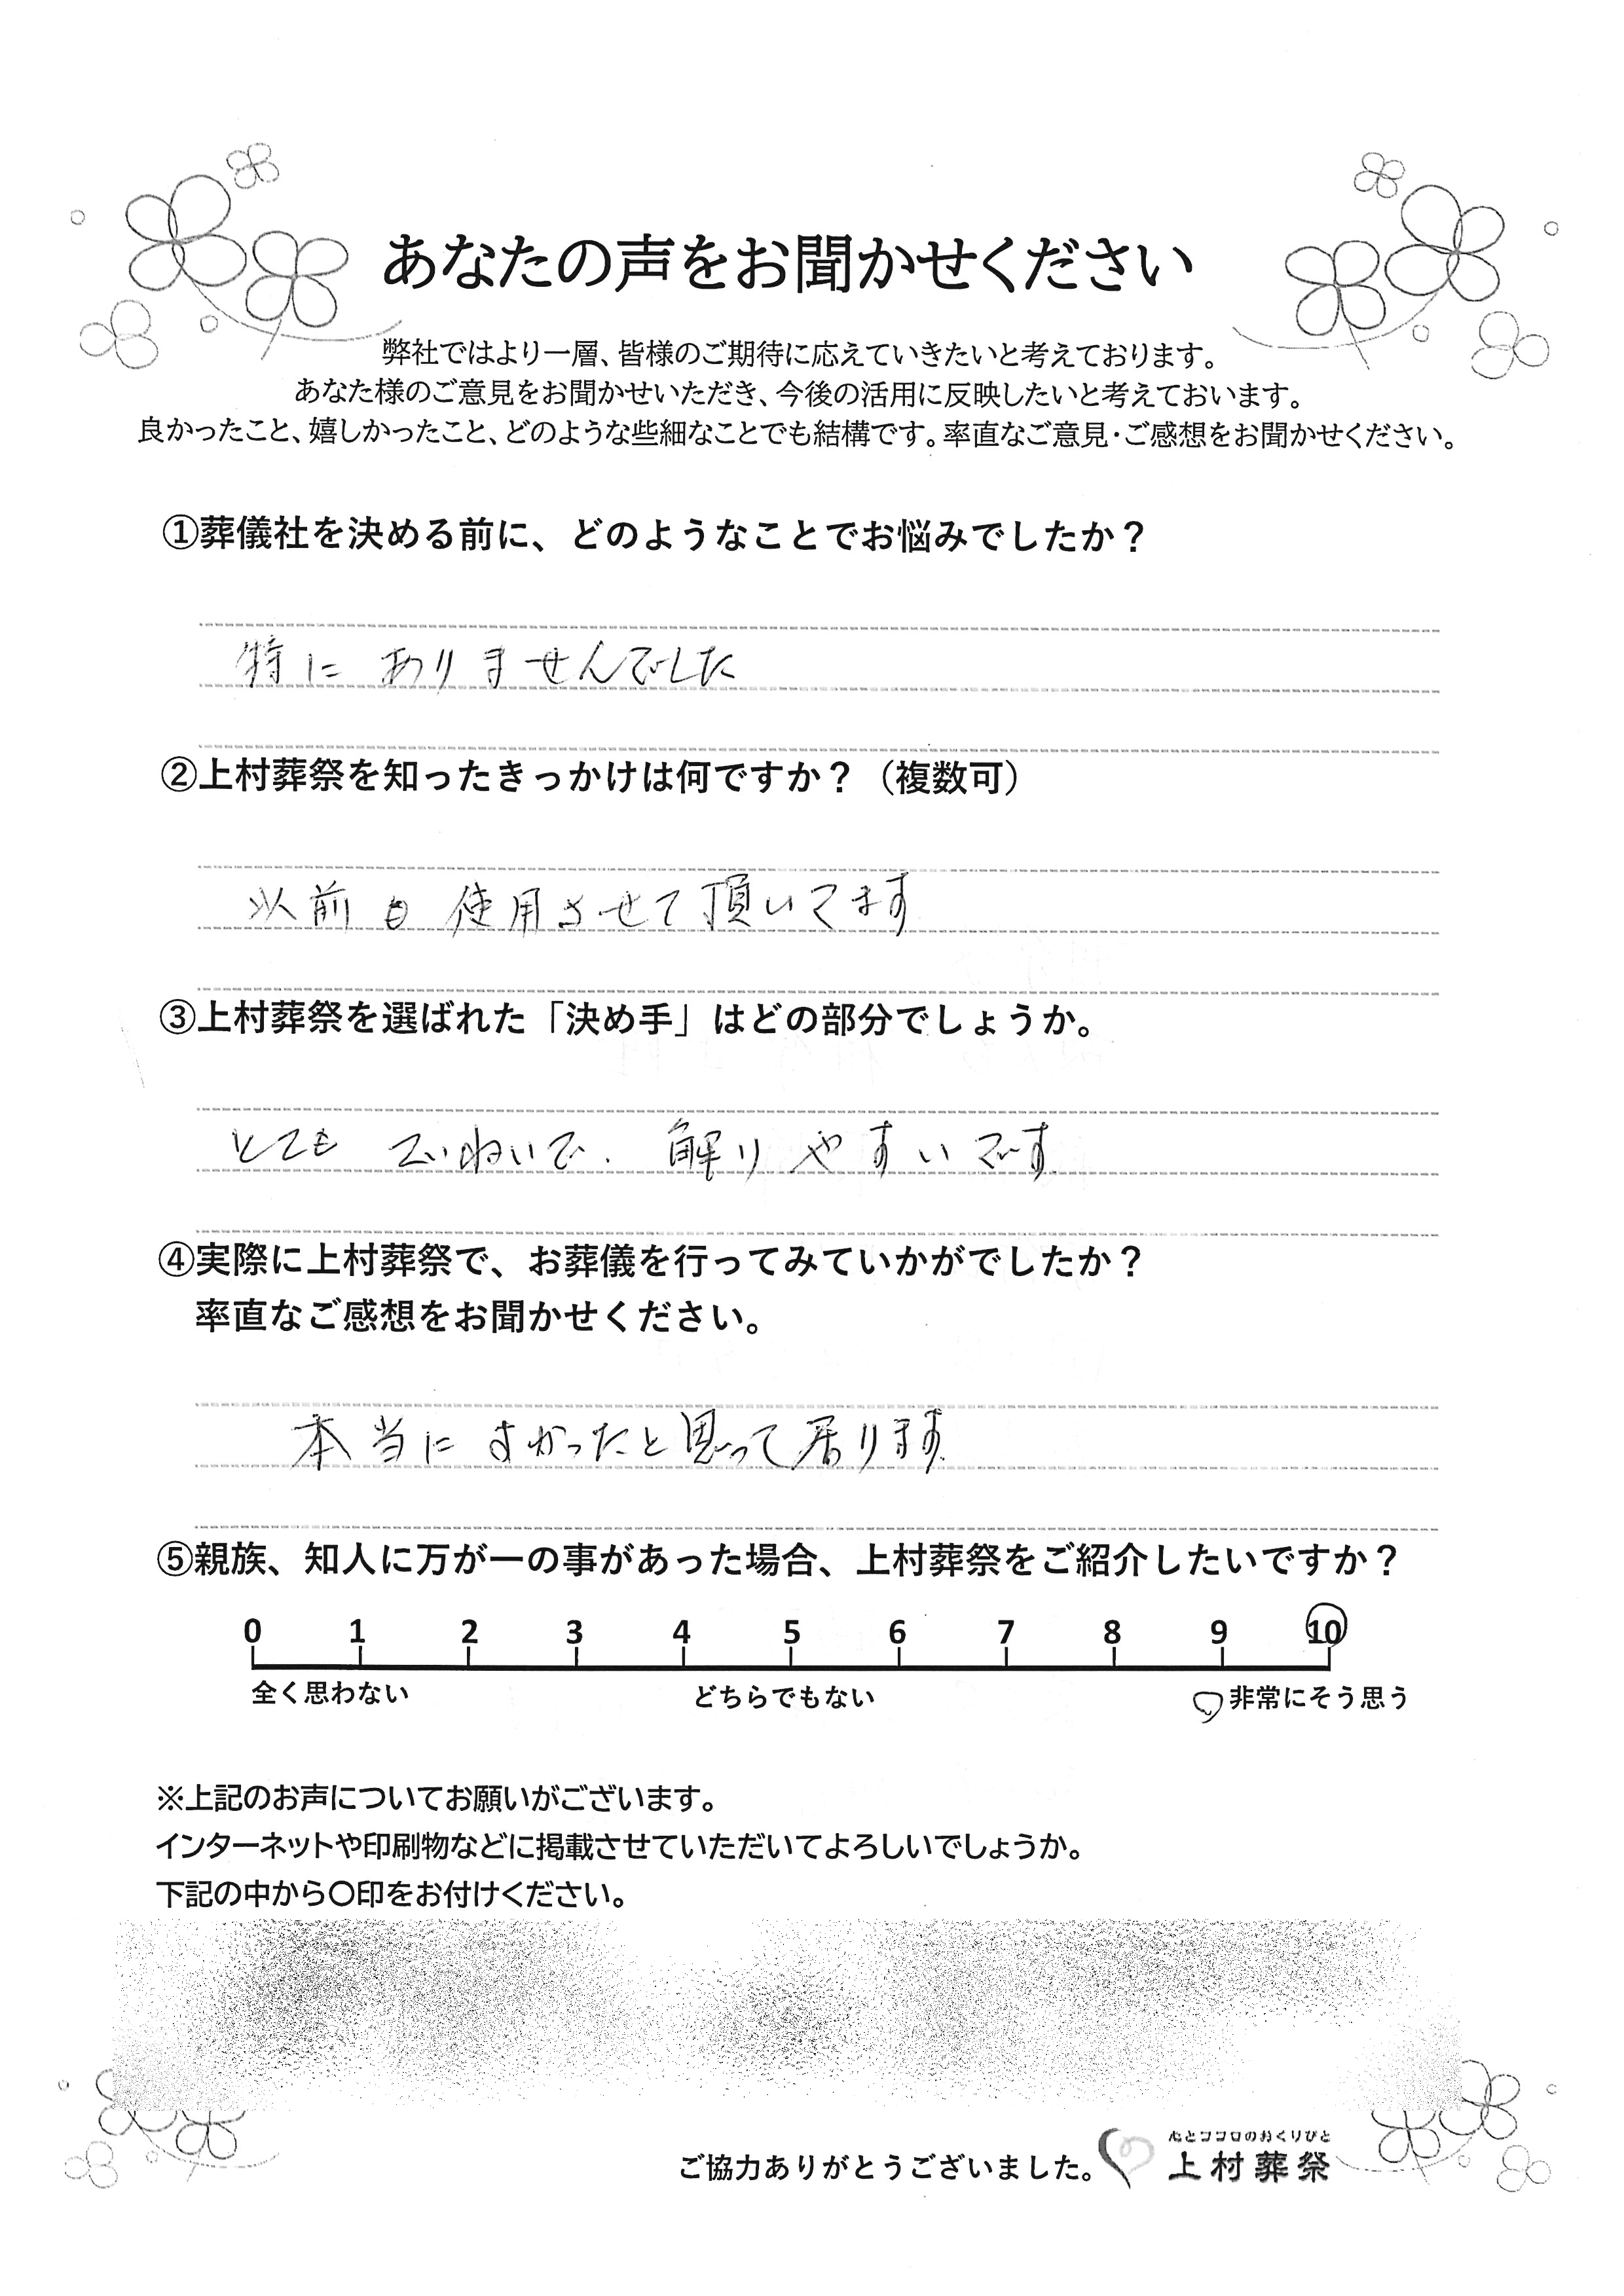 あなたの声をお聞かせください
弊社ではより一層、皆様のご期待に応えていきたいと考えております。
あなた様のご意見をお聞かせいただき、今後の活用に反映したいと考えておいます。
良かったこと、嬉しかったこと、どのような些細なことでも結構です。率直なご意見・ご感想をお聞かせください。
①葬儀社を決める前に、どのようなことでお悩みでしたか？
特に ありませんでした
②上村葬祭を知ったきっかけは何ですか？（複数可）
以前も使用させて頂いてます
③上村葬祭を選ばれた「決め手」はどの部分でしょうか。
とても ていねいで、解りやすいです
④実際に上村葬祭で、お葬儀を行ってみていかがでしたか？
率直なご感想をお聞かせください。
本当に よかったと思って居ります
⑤親族、知人に万が一の事があった場合、上村葬祭をご紹介したいですか？
0 1 2 3 4 5 6 7 8 9 10
全く思わない どちらでもない 非常にそう思う
※上記のお声についてお願いがございます。
インターネットや印刷物などに掲載させていただいてよろしいでしょうか。
下記の中から〇印をお付けください。
心とココロのおくりびと
ご協力ありがとうございました。 上村葬祭